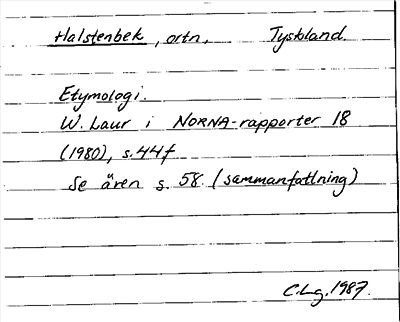 Halstenbek, ortn, Tyskland.
Etymologi.
W. Laur i NORNA-rapporter 18
(1980), s. 44f
Se även s. 58. (sammanfattning)
C.Lg. 1987.